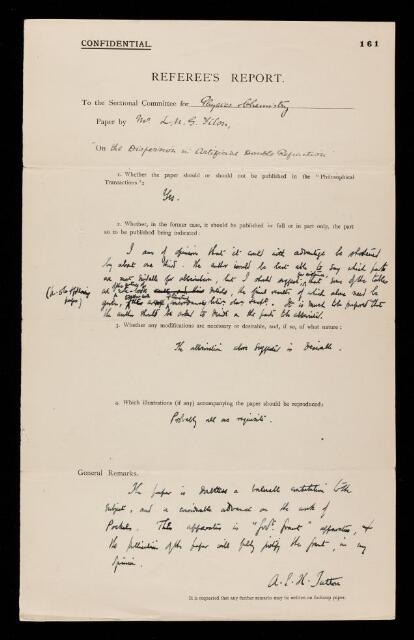 CONFIDENTIAL.
161
REFEREE'S REPORT.
To the Sectional Committee for Physics & Chemistry
Paper by Mr. L. N. G. Filon,
"On the Dispersion in Artificial Double Refraction"
1. Whether the paper should or should not be published in the "Philosophical
Transactions":
Yes.
2. Whether, in the former case, it should be published in full or in part only, the part
so to be published being indicated:
I am of opinion that it could with advantage be shortened
by about one third. The author would be best able to say which parts
are most suitable for abbreviation, but I should suggest, that some of the tables
the final results of which alone need be
It is much to be hoped that
the author should be asked to decide on the parts to be abbreviated.
3. Whether any modifications are necessary or desirable, and, if so, of what nature:
The abbreviation above suggested is desirable.
4. Which illustrations (if any) accompanying the paper should be reproduced:
Probably all are requisite.
General Remarks.
The paper is doubtless a valuable contribution to the
subject, and a considerable advance on the work of
Pockels. The apparatus is "Govt. Grant" apparatus, &
the publication of the paper will fully justify the grant, in my
opinion.
A. E. H. Tutton
It is requested that any further remarks may be written on foolscap paper.